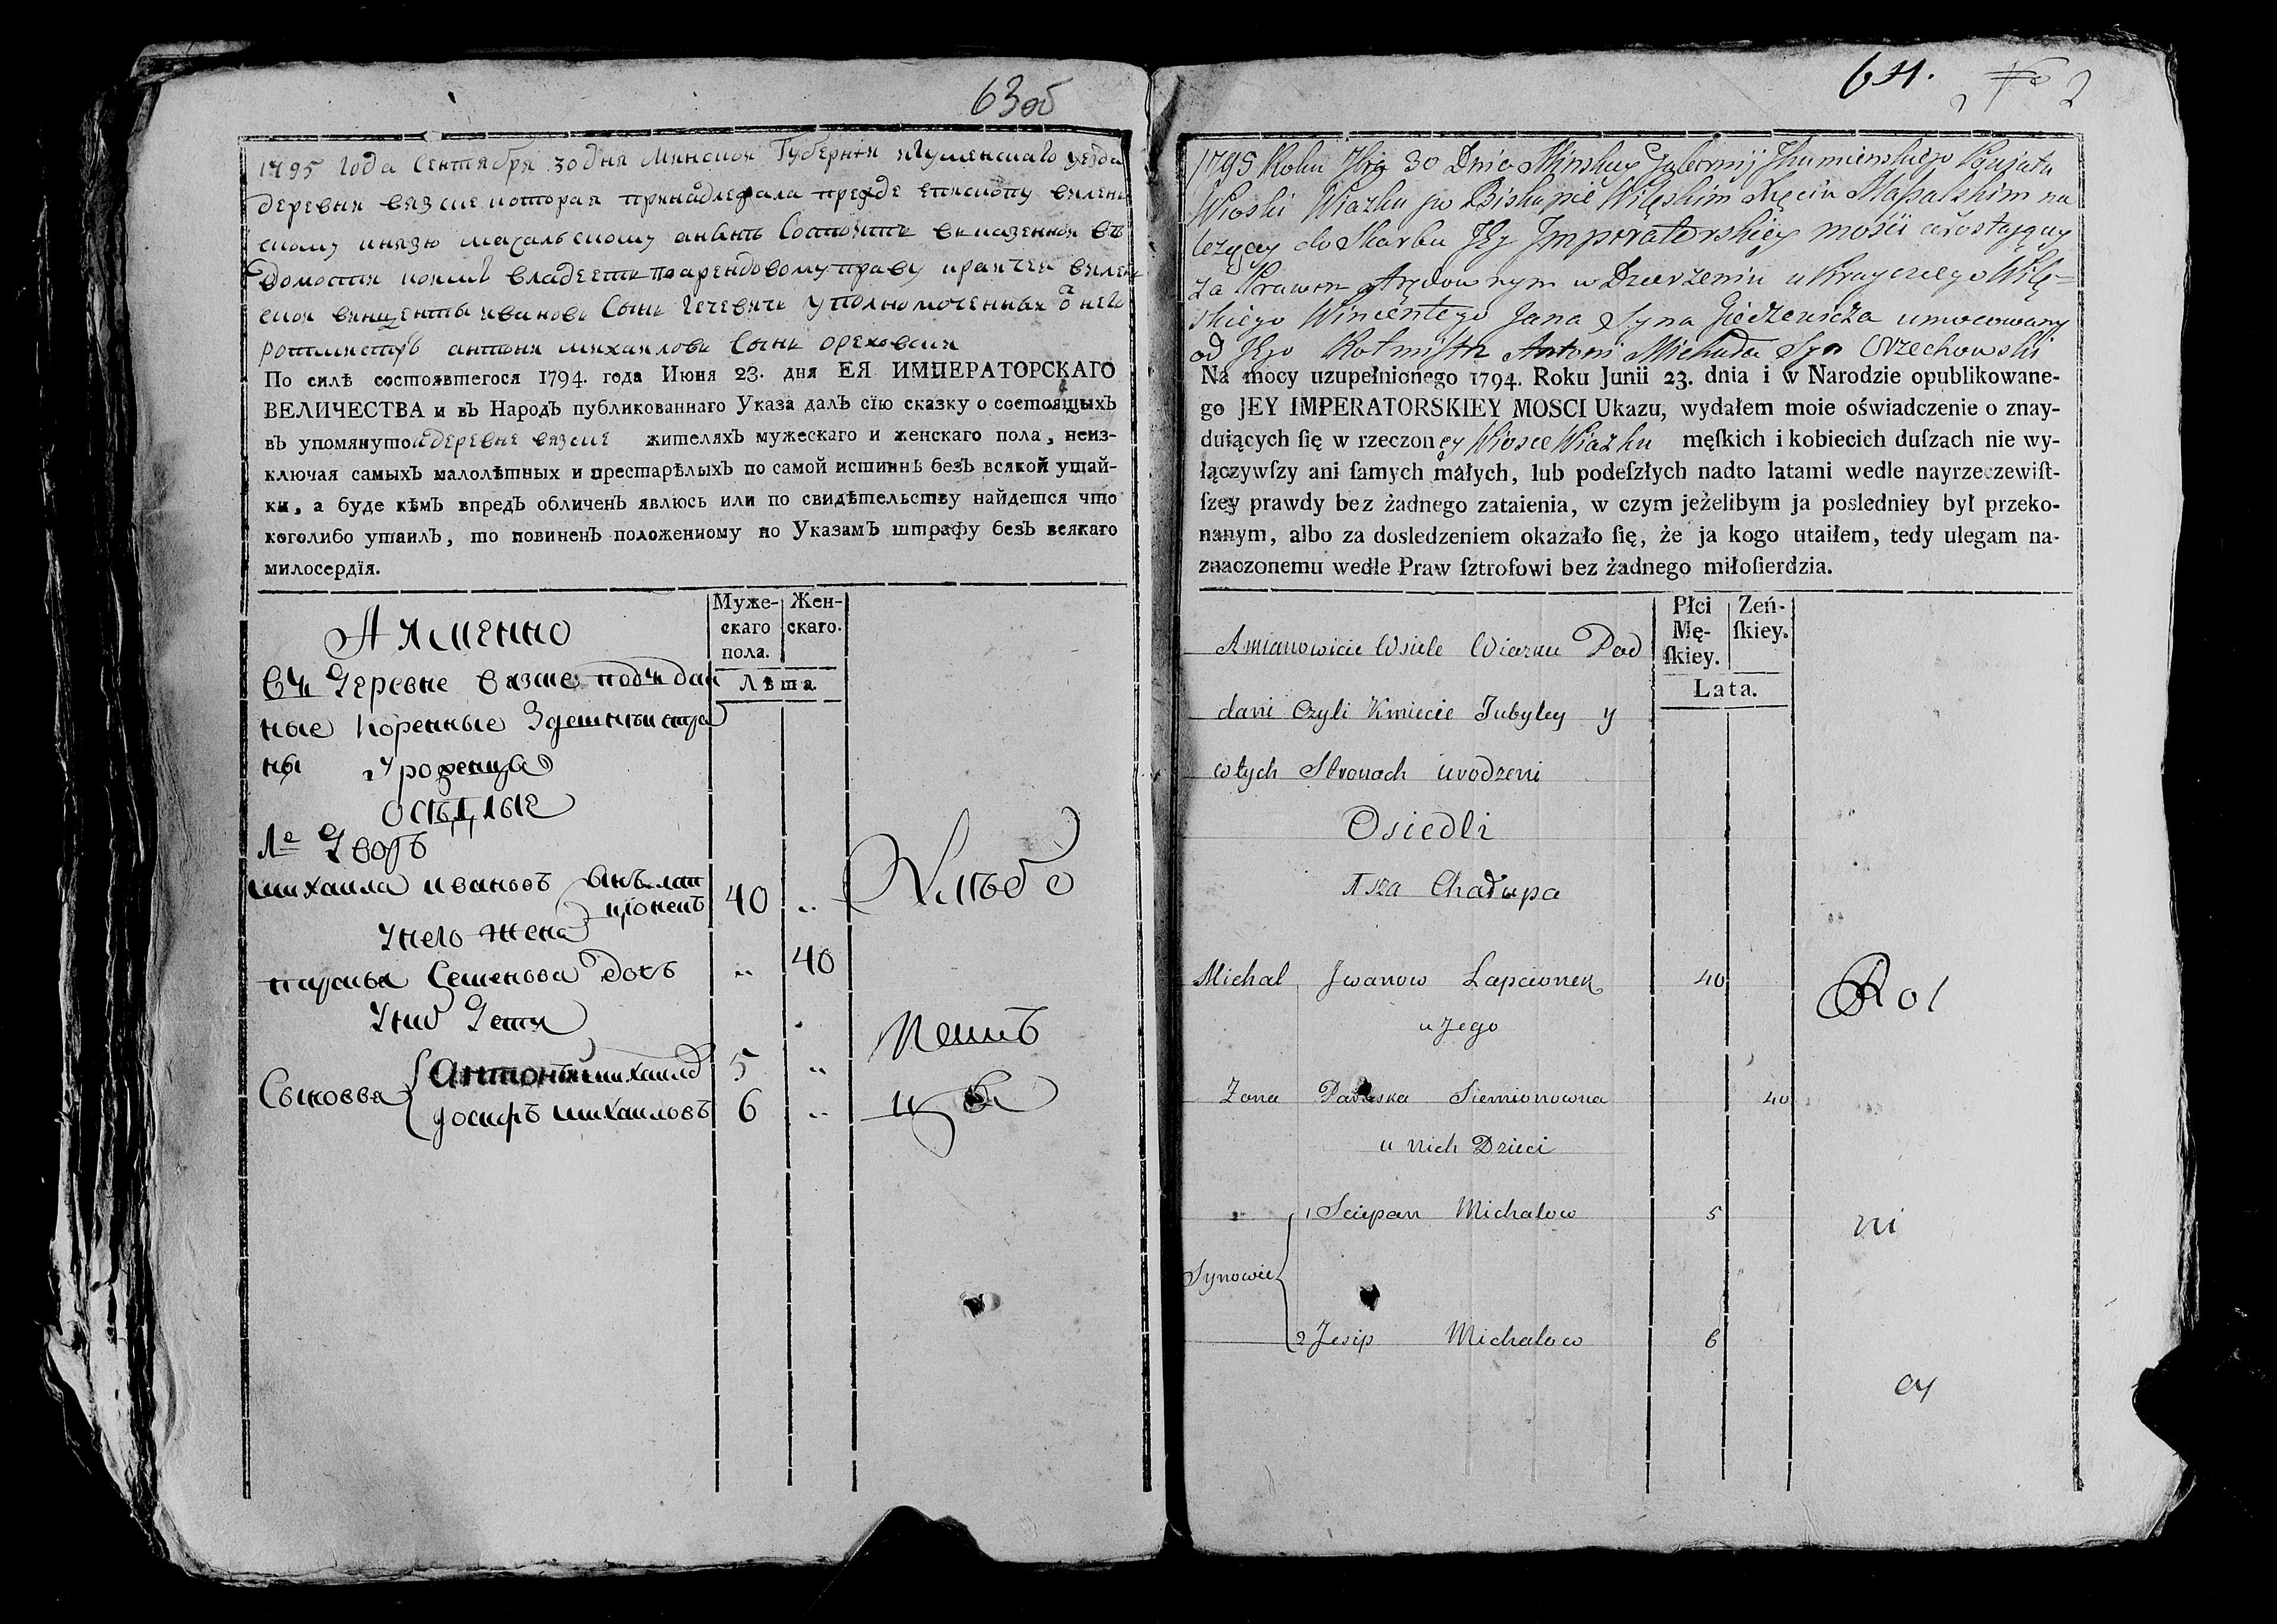 63 об
1795 года Сентября 30 дня Минской Губернии Игуменскаго уезда
деревни вязме которая принадлежала прежде епископу вилен
скому князю масальскому анынѣ Состоитъ вказенной вѣ
домости коимъ владеетъ поарендовому праву крайчей вилен
ской винценты ивановъ Сынъ гечевичъ уполномоченный о него
ротмистръ антони михайловъ Сынъ ореховский
По силѣ состоявшегося 1794. года Июня 23. дня ЕЯ ИМПЕРАТОРСКАГО
ВЕЛИЧЕСТВА и въ Народъ публикованнаго Указа далъ сїю сказку о состоящыхъ
въ упомянутой деревне вязме жителяхъ мужескаго и женскаго пола, неиз-
ключая самыхъ малолѣтных и престарѣлыхъ по самой истиннѣ безъ всякой ушай-
ки, а буде кѣмъ впредъ обличенъ явлюсь или по свидѣтельству найдется что
коголибо утаилъ, то повиненъ положенному по Указамъ штрафу безъ всякаго
милосердїя.
Муже-
скаго
пола.
Жен-
скаго.
Лѣта.
А имеNно
въ Деревне вязме подъдан
ные коренные Здешнъи стра
ны Уроженца
осѣдлые
1е Дворъ
михаила ивановъ Сынъ лап
цїонекъ 40 ..
Унего жена
Семенова дочь .. 40
Уних Дети
Сыновья
антоний михайло 5 ..
Иосифъ михайловъ 6 ..
Хлѣбо
пашъ
цы
64.
№ 2
1795 Roku 7bra 30 Dnia Minskiey Gubernij Jhumienskiego Powiatu
Wioski Wiazku po Biskupie Wilęskim Xięciu Massalskim na
leżącey do Skarbu Jey Jmperatorskiey mosci azostaiącey
za Prawem Arędownym w Dzierżeniu u Krayczego Wilę=
skiego Wincentego Jana Syna Gieczewicza umocowany
od Jego Rotmistrz Antoni Michała Syn Orzechowski
Na mocy uzupełnionego 1794. Roku Junii 23. dnia i w Narodzie opublikowane-
go JEY IMPERATORSKIEY MOSCI Ukazu, wydałem moie oświadczenie o znay-
duiących ſię w rzeczoney Wiosce Wiazku męſkich i kobiecich duſzach nie wy-
łączywſzy ani ſamych małych, lub podeſzłych nadto latami wedle nayrzeczewiſt-
ſzey prawdy bez żadnego zataienia, w czym jeżelibym ja posledniey był przeko-
nanym, albo za dosledzeniem okazało ſię, że ja kogo utaiłem, tedy ulegam na-
znaczonemu wedle Praw ſztrofowi bez żadnego miłoſierdzia.
Płci
Mę-
ſkiey.
Zeń-
ſkiey.
Lata.
Amianowicie Wsiele Wiazku Pod
dani Czyli Kmiecie Tubyley y
wtych Stronach urodzeni
Osiedli
1sza Chałupa
Michal Jwanow Lapcionek 40
u Jego
Zona Paraska Siemionowna 40
u nich Dzieci
1 Sciepan Michalow 5
Synowie
2 Jesip Michalow 6
Rol
ni
cy